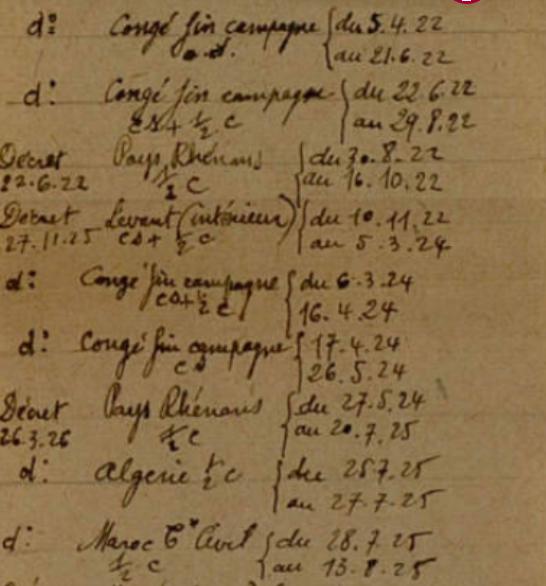 d° Congé fin campagne { du 5.4.22
s.d. au 21.6.22
d° Congé fin campagne { du 22.6.22
CS + ½ C au 29.8.22
Décret Pays Rhénans { du 30.8.22
22.6.22 ½ C au 16.10.22
Décret Levant (intérieur) { du 10.11.22
27.11.25 CS + ½ C au 5.3.24
d° Congé fin campagne { du 6.3.24
CS + ½ C 16.4.24
d° Congé fin campagne { 17.4.24
CS 26.5.24
Décret Pays Rhénans { du 27.5.24
26.3.26 ½ C au 20.7.25
d° Algerie ½ C { du 25.7.25
au 27.7.25
d° Maroc Civil { du 28.7.25
½ C au 13.8.25